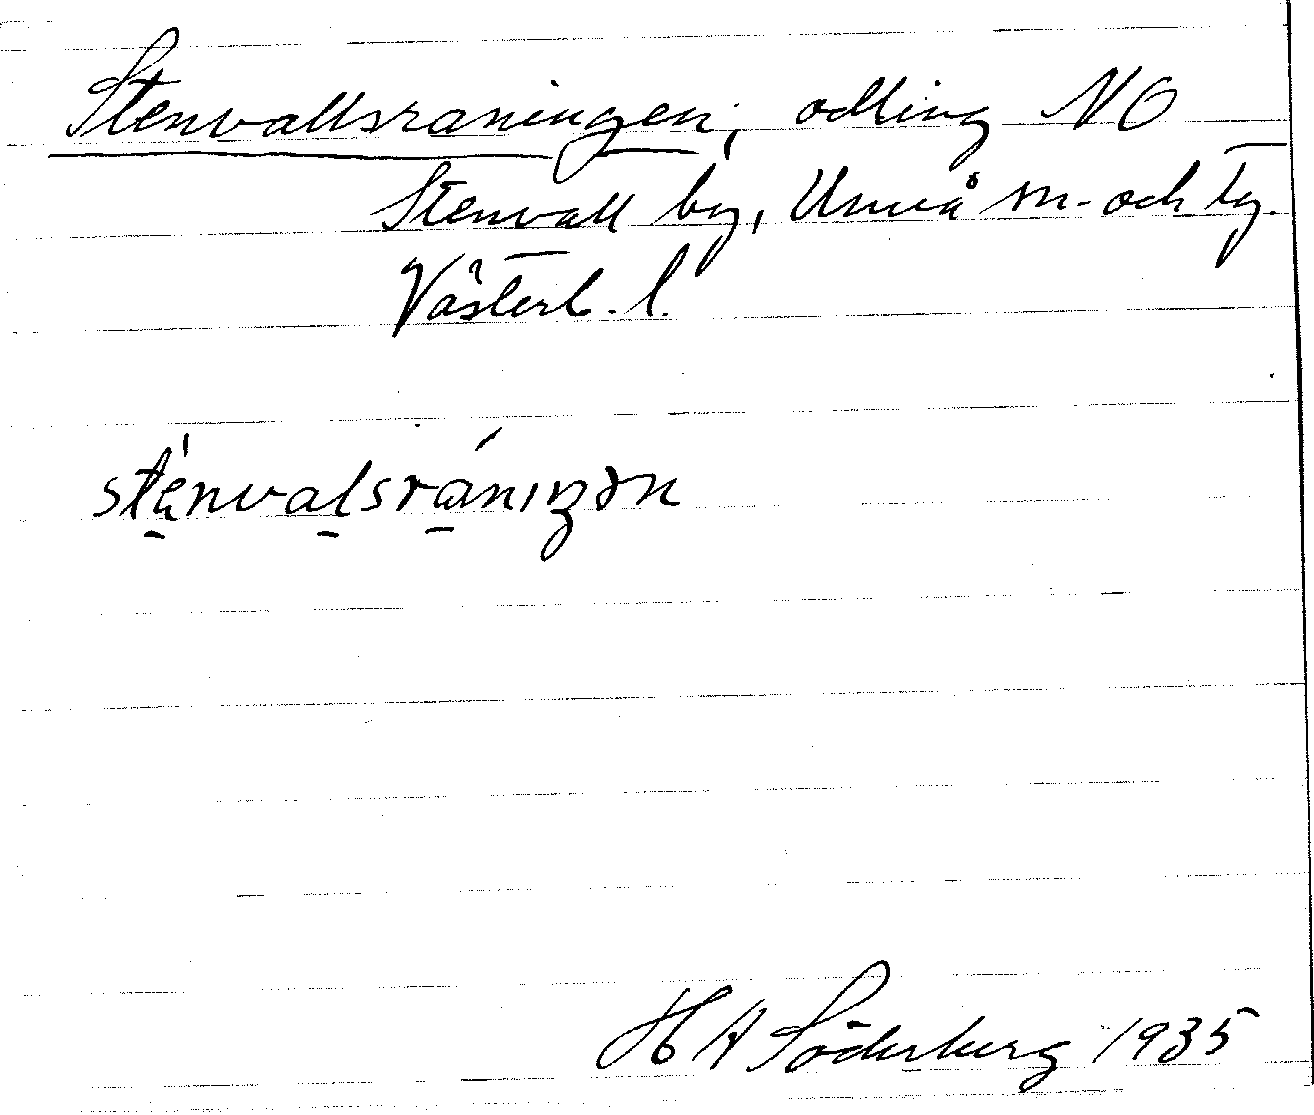 Stenvallsraningen, odling NO
Stenvall by, Umeå sn. och tg.
Västerb. l.
sténvalsránıŋən
H A Söderberg 1935